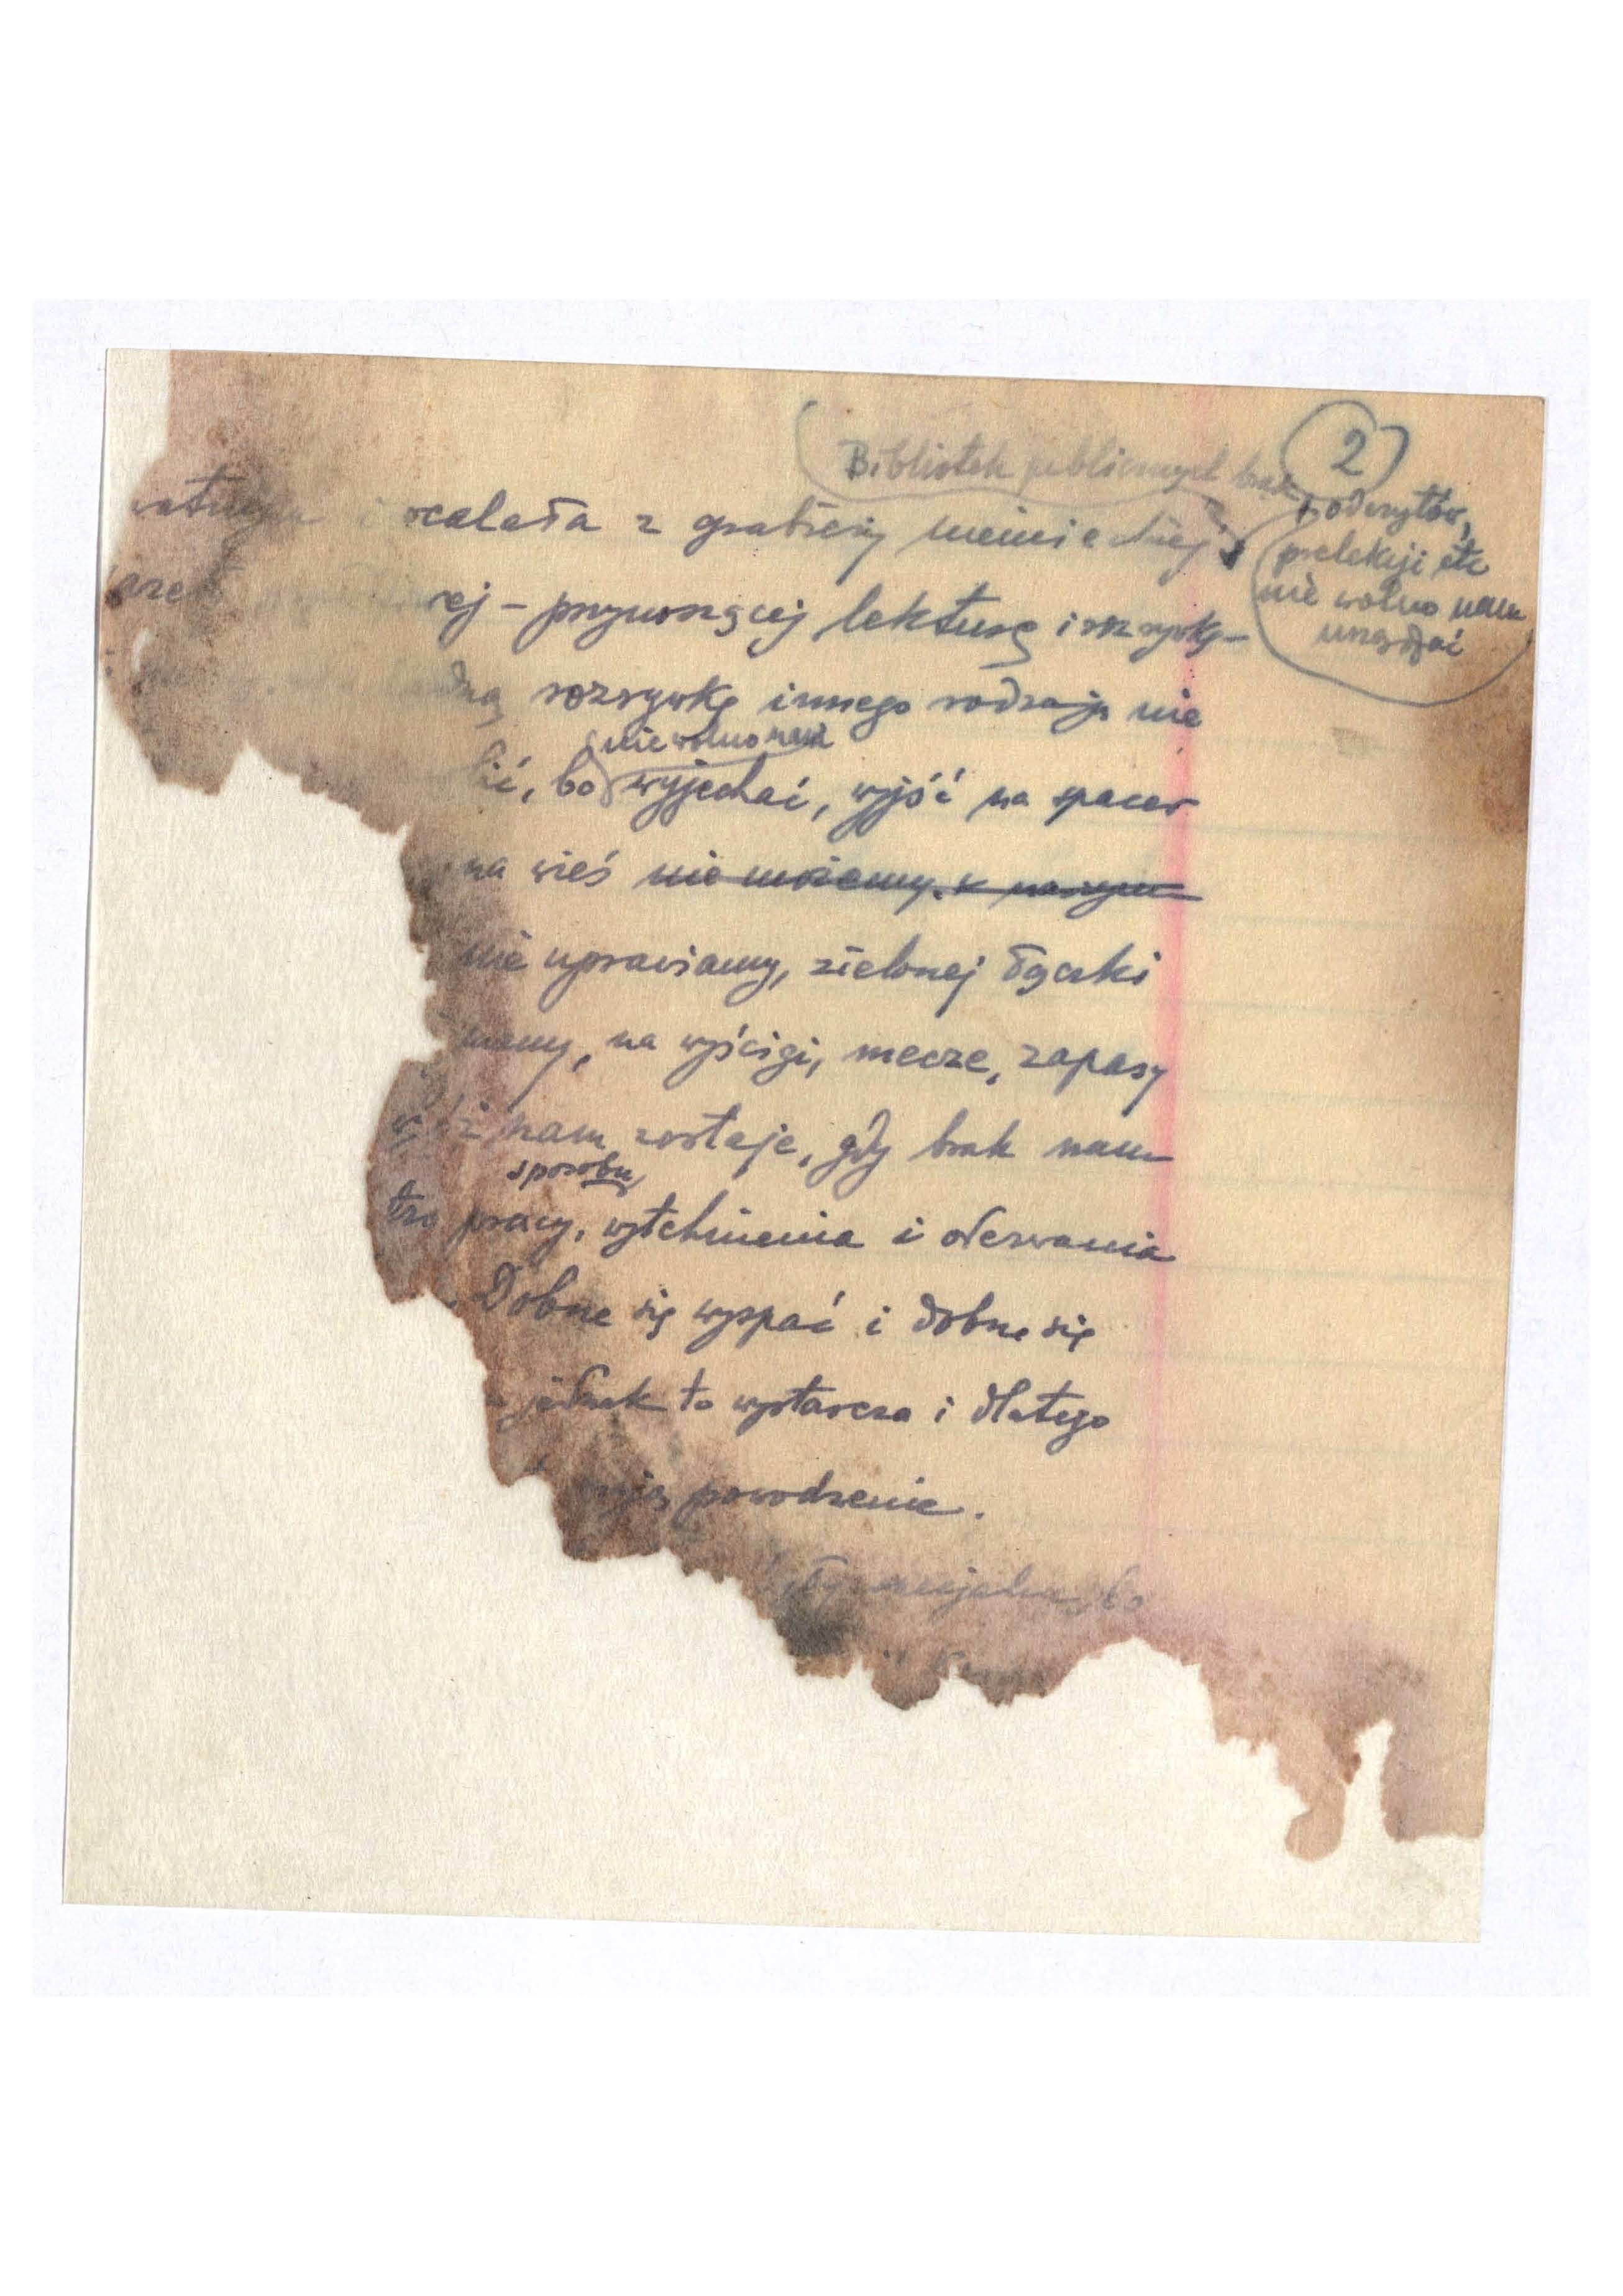 2
Bibliotek publicznych brak,
odczytów,
prelekcji etc
nie wolno nam
urządzać
ocalała z grabieży niemieckiej
rej – przynoszącej lekturę i rozrywkę –
rozrywkę innego rodzaju nie
nie wolno nam
bo wyjechać, wyjść na spacer
na wieś nie możemy, w naszym
nie uprawiamy, zielonej łączki
mamy, na wyścigi, mecze, zapasy
nam zostaje, gdy brak nam
sposobu
pracy, wytchnienia i oderwania
Dobrze się wyspać i dobrze się
jednak to wystarcza i dlatego
powodzenie.